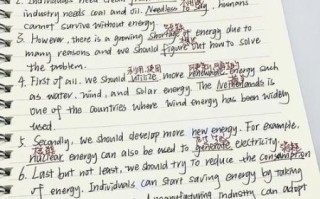 2. Individuals need clean
industry needs coal and oil. Needless to say, humans
cannot survive without energy.
3. However, there is a growing shortage of energy due to
many reasons and we should figure out how to solve
the problem.
4. First of all, we should utilize more renewable energy such
as water, wind, and solar energy. The Netherlands is
one of the countries where wind energy has been widely
used.
5. Secondly, we should develop more new energy. For example,
nuclear energy can also be used to generate electricity.
6. Last but not least, we should try to reduce the consumption
of energy. Individuals can start saving energy by taking
manufacturing industry can adopt